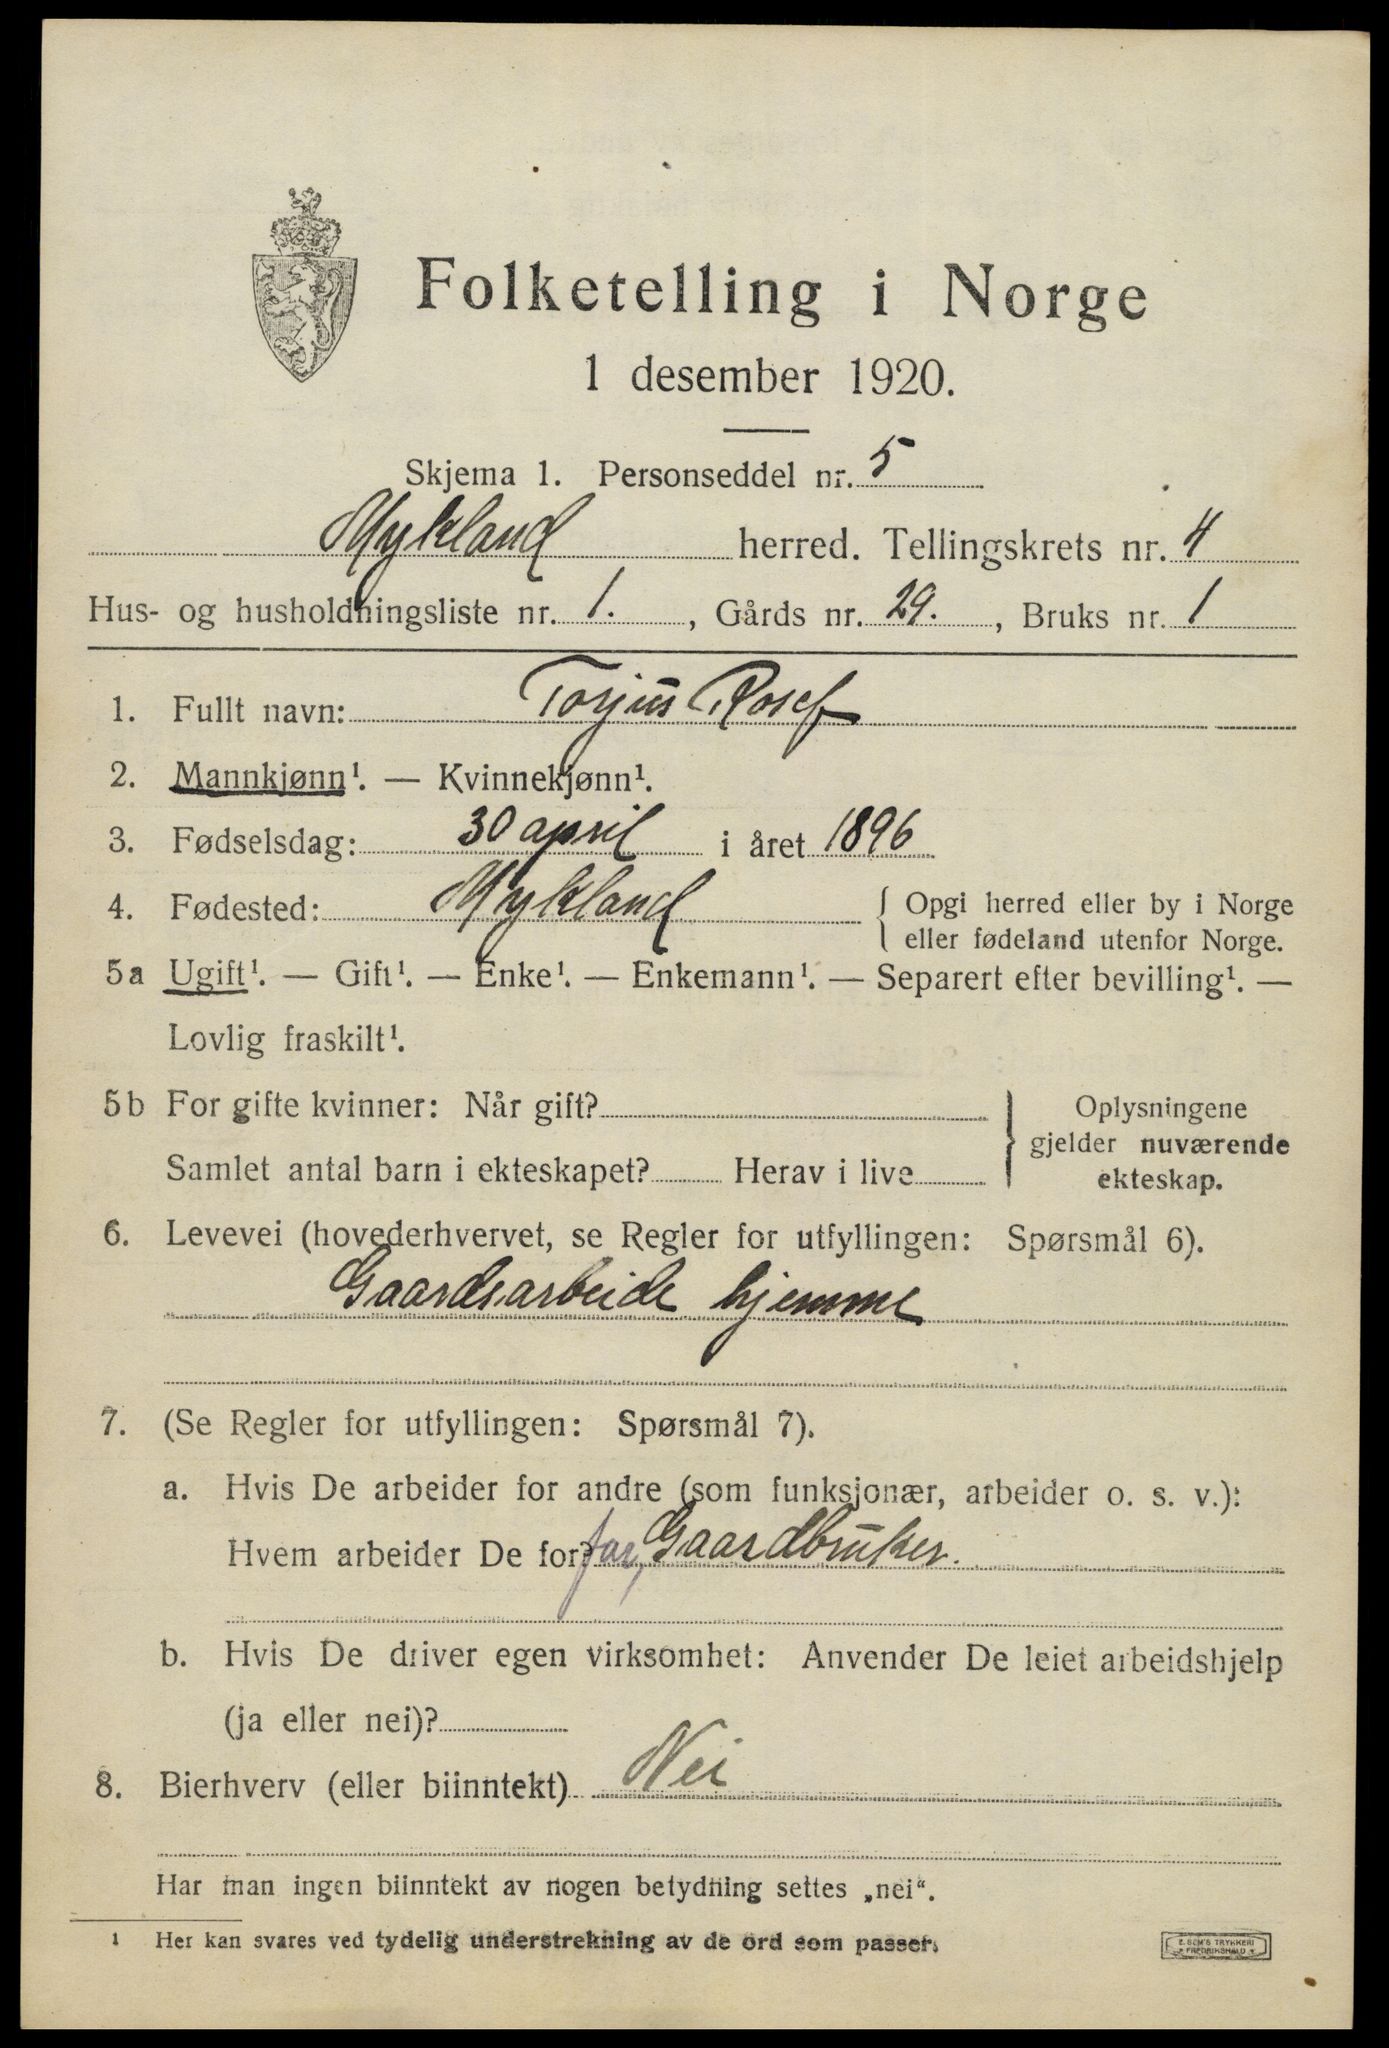 Folketelling i Norge
1 desember 1920.
Skjema 1. Personseddel nr. 5
Mykland herred. Tellingskrets nr. 4
Hus- og husholdningsliste nr. 1. , Gårds nr. 29. , Bruks nr. 1
1. Fullt navn: Torjus Rosef
2. Mannkjønn¹. — Kvinnekjønn¹.
3. Fødselsdag: 30 april i året 1896
4. Fødested: Mykland { Opgi herred eller by i Norge
eller fødeland utenfor Norge.
5a Ugift¹. — Gift¹. — Enke¹. — Enkemann¹. — Separert efter bevilling¹. —
Lovlig fraskilt¹.
5b For gifte kvinner: Når gift?
Samlet antal barn i ekteskapet? Herav i live
} Oplysningene
gjelder nuværende
ekteskap.
6. Levevei (hovederhvervet, se Regler for utfyllingen: Spørsmål 6).
Gaardsarbeide hjemme
7. (Se Regler for utfyllingen: Spørsmål 7).
a. Hvis De arbeider for andre (som funksjonær, arbeider o. s. v.):
Hvem arbeider De for? far, Gaardbruker.
b. Hvis De driver egen virksomhet: Anvender De leiet arbeidshjelp
(ja eller nei)?
8. Bierhverv (eller biinntekt) Nei
Har man ingen biinntekt av nogen betydning settes „nei“.
¹ Her kan svares ved tydelig understrekning av de ord som passer.
E. SEM'S TRYKKERI
FREDRIKSHALD